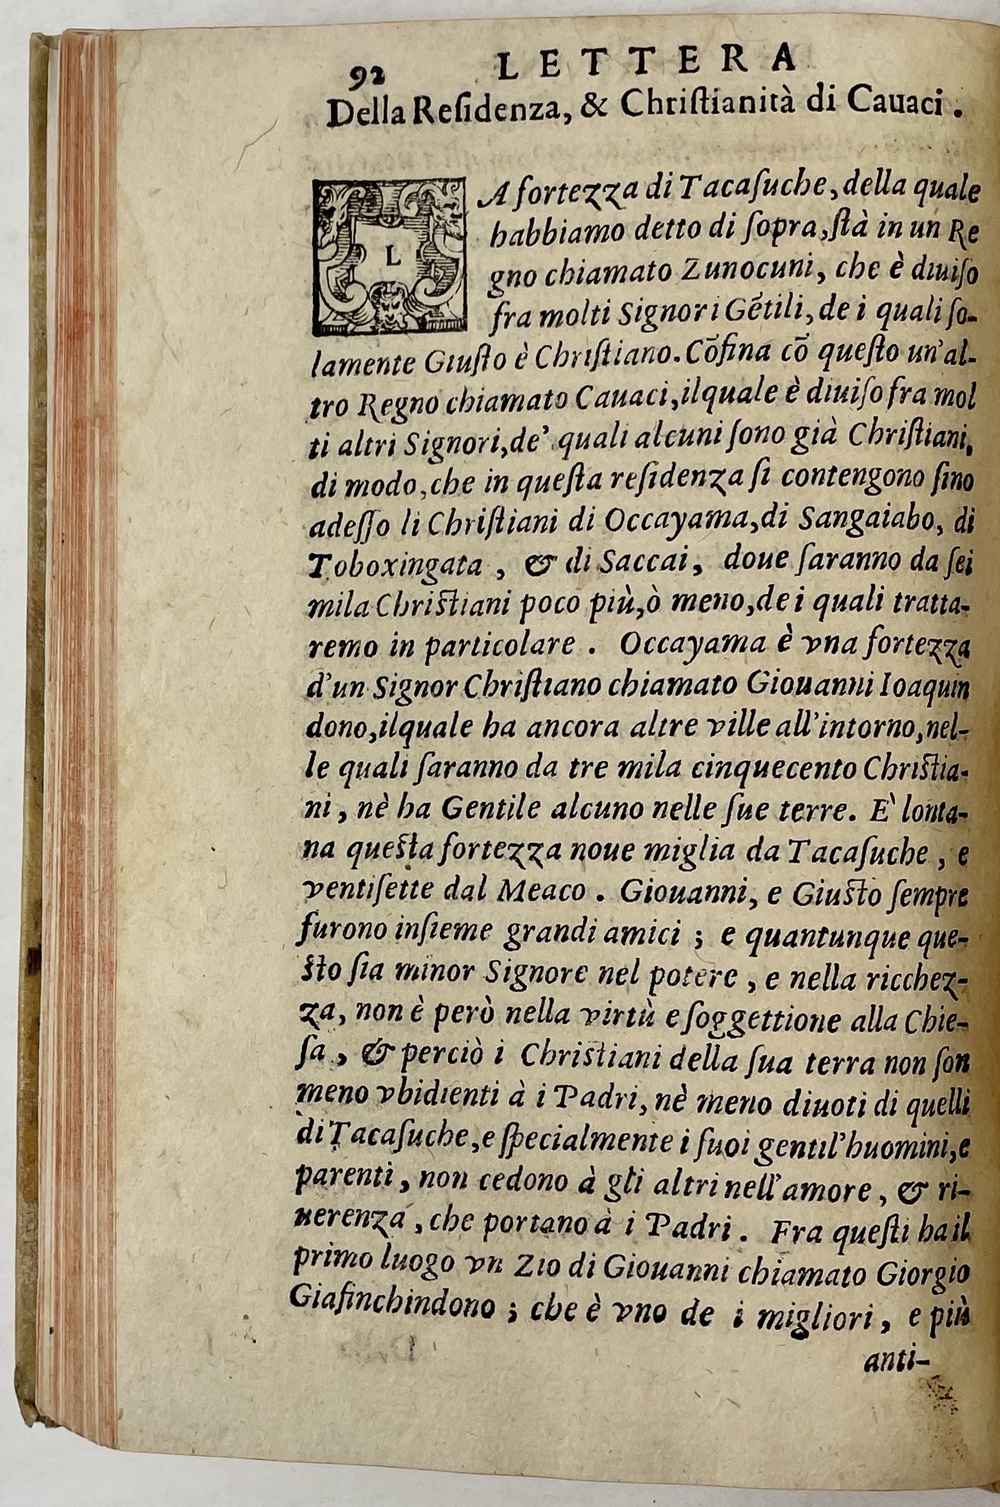 92 LETTERA
Della Reſidenza, & Chriſtianità di Cauaci.
LA fortezza di Tacaſuche, della quale
habbiamo detto di ſopra, ſtà in un Re
gno chiamato Zunocuni, che è diuiſo
fra molti Signori Gẽtili, de i quali ſo-
lamente Giuſto è Chriſtiano. Cõfina cõ queſto un'al-
tro Regno chiamato Cauaci, ilquale è diuiſo fra mol
ti altri Signori, de' quali alcuni ſono già Chriſtiani,
di modo, che in queſta reſidenza ſi contengono ſino
adeſſo li Chriſtiani di Occayama, di Sangaiabo, di
Toboxingata, & di Saccai, doue ſaranno da ſei
mila Chriſtiani poco più, ò meno, de i quali tratta-
remo in particolare. Occayama è vna fortezza
d'un Signor Chriſtiano chiamato Giouanni Ioaquin
dono, ilquale ha ancora altre ville all'intorno, nel-
le quali ſaranno da tre mila cinquecento Chriſtia-
ni, nè ha Gentile alcuno nelle ſue terre. E' lonta-
na queſta fortezza noue miglia da Tacaſuche, e
ventiſette dal Meaco. Giouanni, e Giuſto ſempre
furono inſieme grandi amici; e quantunque que-
ſto ſia minor Signore nel potere, e nella ricchez-
za, non è però nella virtù e ſoggettione alla Chie-
ſa, & perciò i Chriſtiani della ſua terra non ſon
meno vbidienti à i Padri, nè meno diuoti di quelli
di Tacaſuche, e ſpecialmente i ſuoi gentil'huomini, e
parenti, non cedono à gli altri nell'amore, & ri-
uerenza, che portano à i Padri. Fra queſti ha il
primo luogo vn Zio di Giouanni chiamato Giorgio
Giafinchindono; che è vno de i migliori, e più
anti-